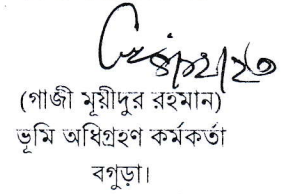 (গাজী মূয়ীদুর রহমান)
ভূমি অধিগ্রহণ কর্মকর্তা
বগুড়া।